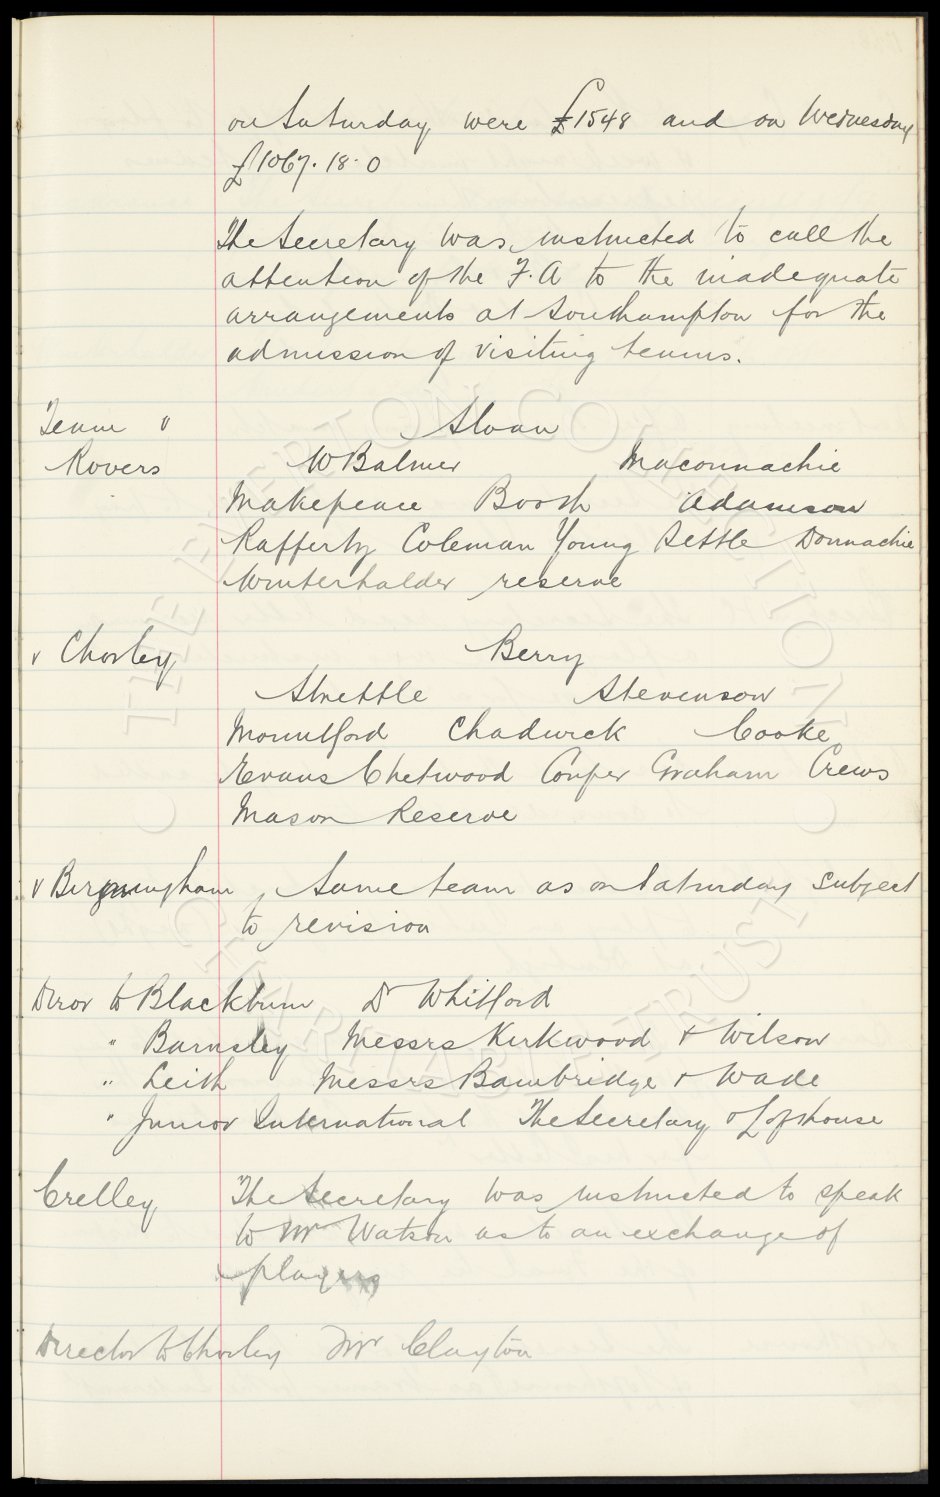 on Saturday were £1548 and on Wednesday
£1067.18.0
The Secretary was instructed to call the
attention of the F.A to the inadequate
arrangements at Southampton for the
admission of visiting teams.
Team v Sloan
Rovers W Balmer Maconnachie
Makepeace Booth Adamson
Rafferty Coleman Young Settle Donnachie
Winterhalder reserve
v Chorley Berry
Strettle Stevenson
Mountford Chadwick Cooke
Evans Chetwood Couper Graham Crews
Mason Reserve
v Birmingham, Same team as on Saturday subject
to revision
Direor to Blackburn Dr Whitford
" Barnsley Messrs Kirkwood & Wilson
" Leith Messrs Bainbridge & Wade
" Junior International The Secretary & Lofthouse
Crelley The Secretary was instructed to speak
to Mr Watson as to an exchange of
players
Director to Chorley Mr Clayton
THE EVERTON COLLECTION
CHARITABLE TRUST